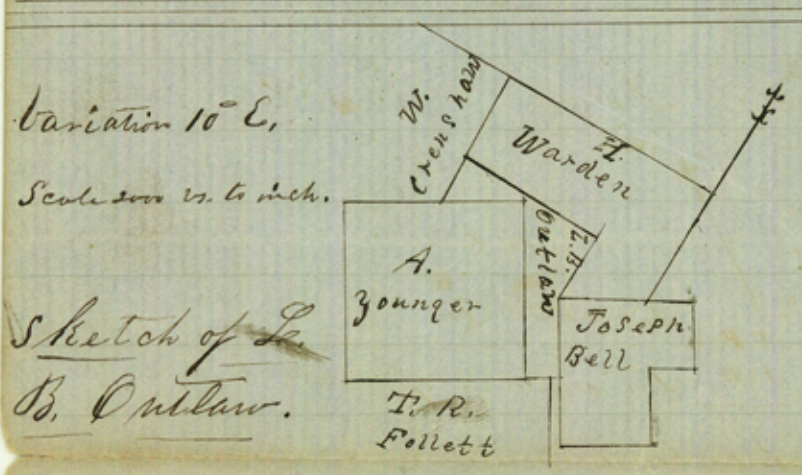 Variation 10° E.
Scale 2000 vs. to inch.
Sketch of L.
B. Outlaw.
W.
Crenshaw
H.
Warden
L.B.
Outlaw
A.
Younger
Joseph
Bell
T. R.
Follett